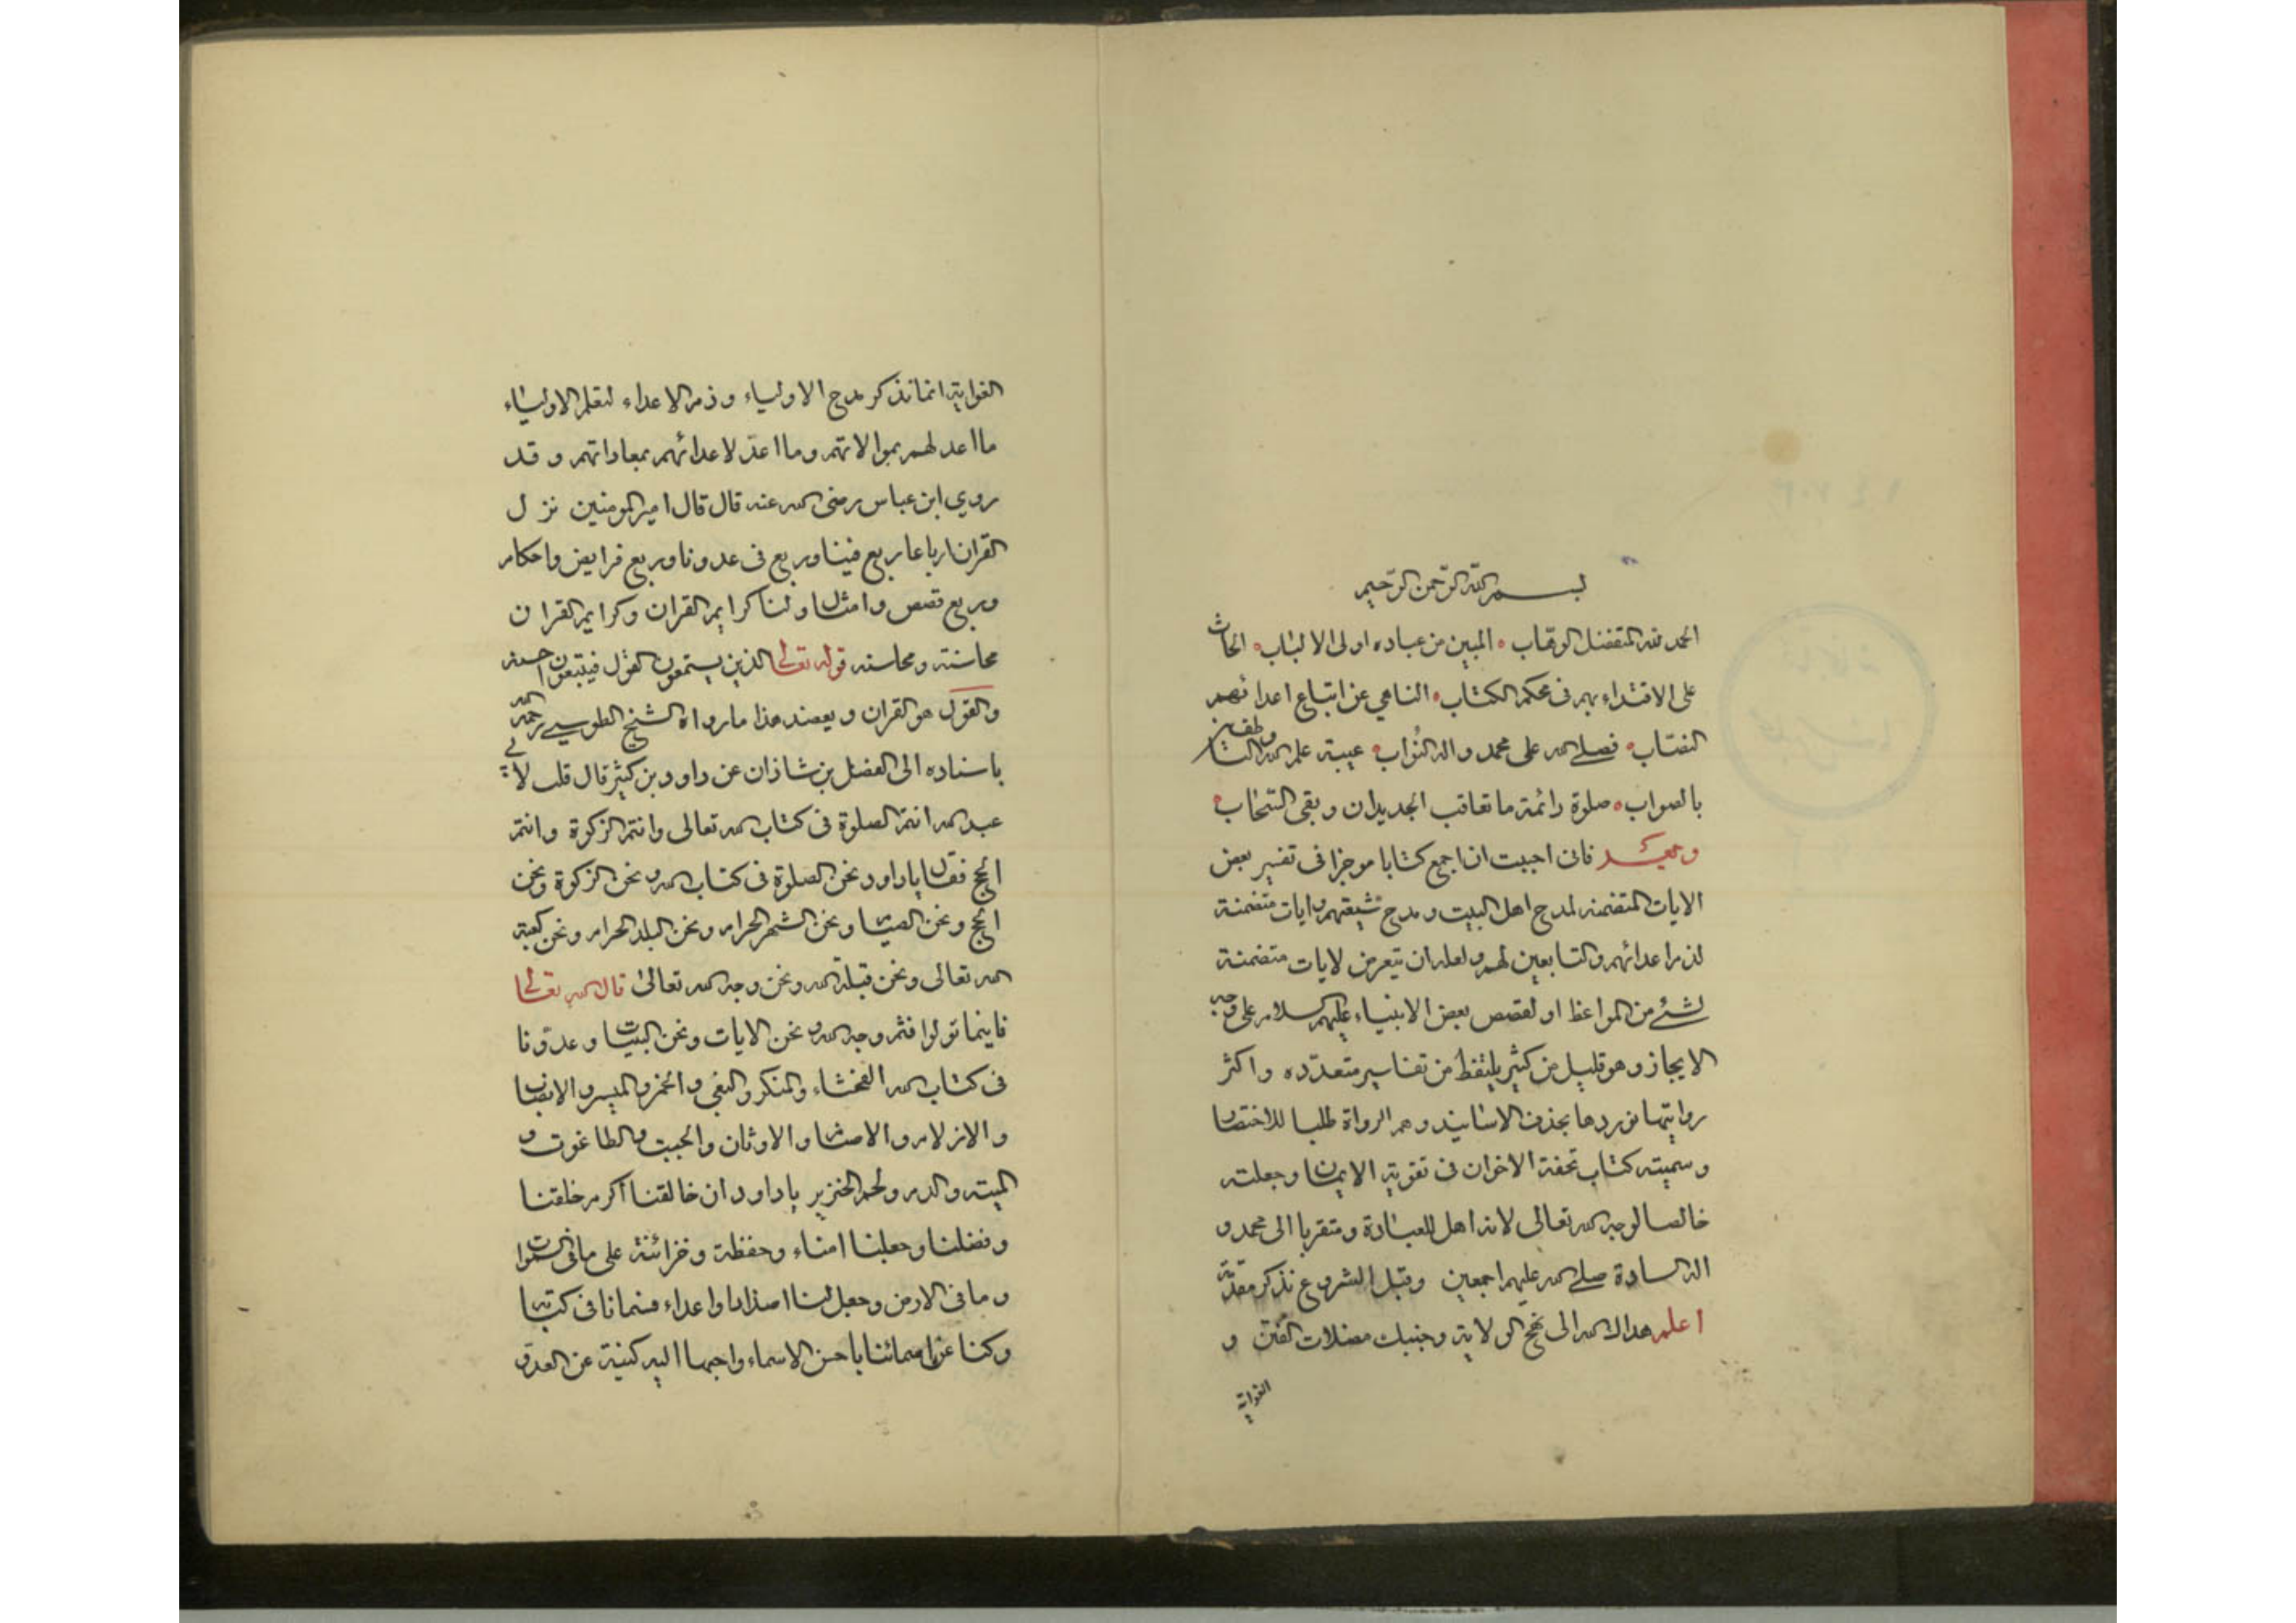 بسم الله الرحمن الرحيم
الحمد لله المتفضل الوهاب المبين من عباده اولى الالباب الحاث
على الاقتداء بهم فى محكم الكتاب الناهي عن اتباع اعدائهم
النصاب فصلى الله على محمد واله النُواب عيبة علم الله
بالصواب صلوة دائمة ما تعاقب الجديدان وبقى السحاب
وبعد فانى احببت ان اجمع كتابا موجزا فى تفسير بعض
الايات المتضمنه لمدح اهل البيت ومدح شيعتهم وايات متضمنة
لذم اعدائهم والتابعين لهم ولعله ان يتعرض لايات متضمنة
لشئ من المواعظ او لقصص بعض الانبياء عليهم السلام على وجه
الايجاز وهو قليل من كثير يلتقط من تفاسير متعدّده واكثر
روايتها نوردها بحذف الاسانيد وهم الرواة طلبا للاختصار
وسميته كتاب تحفة الاخوان فى تقوية الايمان وجعلته
خالصا لوجه الله تعالى لانه اهل للعبادة ومتقربا الى محمد و
اله السادة صلى الله عليهم اجمعين وقبل الشروع نذكر مقدّمة
اعلم هداك الله الى نهج الولاية وجنبك مضلات الفتن و
الغواية
الغواية انما نذكر مدح الاولياء وذم الاعداء لتعلم الاولياء
ما اعد لهم بموالاتهم وما اعدّ لاعدائهم بمعاداتهم وقد
روي ابن عباس رضى الله عنه قال قال امير المومنين نزل
القران ارباعا ربع فينا وربع فى عدونا وربع فرايض واحكام
وربع قصص وامثال ولنا كرايم القران وكرايم القران
محاسنه ومحاسنه قوله تعالى الذين يستمعون القول فيتبعون احسنه
والقول هو القران ويعضد هذا ما رواه الشيخ الطوسي رحمه الله
باسناده الى الفضل بن شاذان عن داود بن كثير قال قلت لابي
عبد الله انتم الصلوة فى كتاب الله تعالى وانتم الزكوة وانتم
الحج فقال يا داود نحن الصلوة فى كتاب الله ونحن الزكوة ونحن
الحج ونحن الصيام ونحن الشهر الحرام ونحن البلد الحرام ونحن كعبة
الله تعالى ونحن قبلة الله ونحن وجه الله تعالى قال الله تعالى
فاينما تولوا فثم وجه الله ونحن الايات ونحن البينات وعدوّنا
فى كتاب الله الفحشاء والمنكر والبغى والخمر والميسر والانصاب
والازلام والاصنام والاوثان والجبت والطاغوت و
الميته والدم ولحم الخنزير يا داود ان خالقنا اكرم خلقنا
وفضلنا وجعلنا امناء وحفظة وخزائنه على ما فى السموات
وما فى الارض وجعل لنا اضدادا واعداء فسمانا فى كتابه
وكنا عن اسمائنا باحسن الاسماء واحبها اليه كنية عن العدوّ